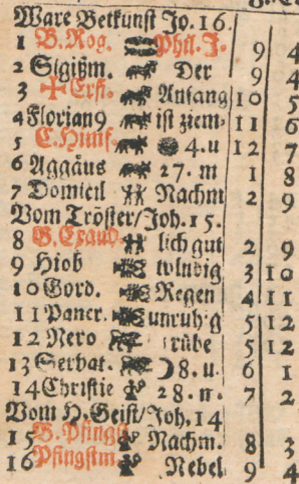 Ware Betkunst Jo. 16.
1 B. Rog. Phil. J. 9 4
2 Sigißm. Der 9 4
3 Erfi. Anfang 10 5
4 Florian9 ist ziem- 11 6
5 C. Hunf. 4. u 12 7
6 Aggäus 27. m 1 8
7 Domicil Nachm 2 9
Vom Tröster/Joh. 15.
8 B. Exaud. lich gut 2 9
9 Hiob windig 3 10
10 Gord. Regen 4 11
11 Pancr. unruhig 5 12
12 Nero trübe 5 12
13 Servat. 8. u. 6 1
14 Christie 28. n. 7 2
Vom H. Geist/Joh. 14
15 B. Pfingst Nachm. 8 3
16 Pfingstm. Nebel 9 4